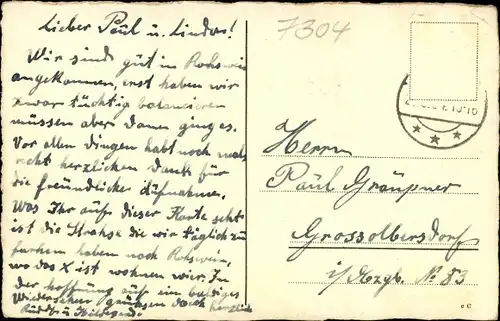 Lieber Paul u. Lindas!
Wir sind gut in Roßwein
angekommen, erst haben wir
zwar tüchtig balancieren
müssen aber dann ging es.
Vor allen dingen habt noch mals
recht herzlichen Dank für
die freundliche Aufnahme.
Was Ihr auf dieser Karte seht
ist die Straße die wir täglich zu
fahren haben nach Roßwein,
wo das X ist wohnen wir. In
der hoffnung auf ein baldiges
Wiedersehen grüßen Euch herzlich
Rudolf u. Hildegard.
7304
Herrn
Paul Gräupner
Grossolbersdorf
i/Erzgb. No 83
e C